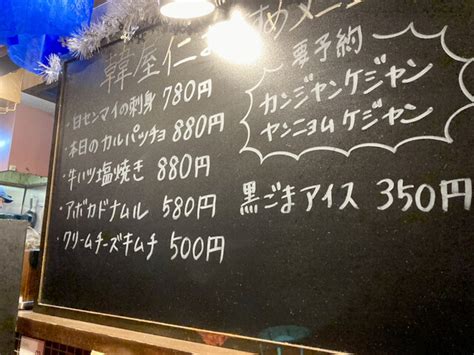 韓屋仁おすすめメニュー
・白センマイの刺身 780円
・本日のカルパッチョ 880円
・牛ハツ塩焼き 880円
・アボカドナムル 580円
・クリームチーズキムチ 500円
要予約
カンジャンケジャン
ヤンニョムケジャン
黒ごまアイス 350円